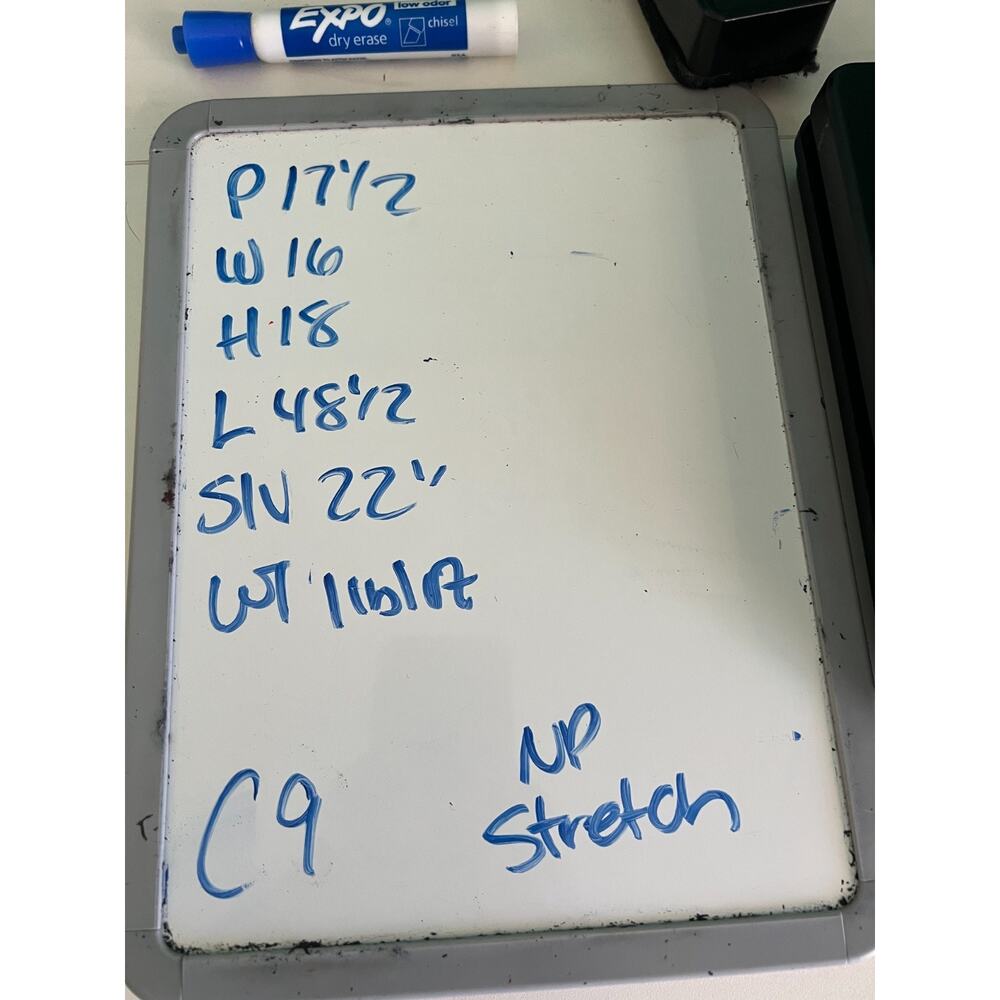 EXPO® low odor
dry erase chisel
P 17 1/2
W 16
H 18
L 48 1/2
Slv 22"
WT 1lb
NP
Stretch
C9